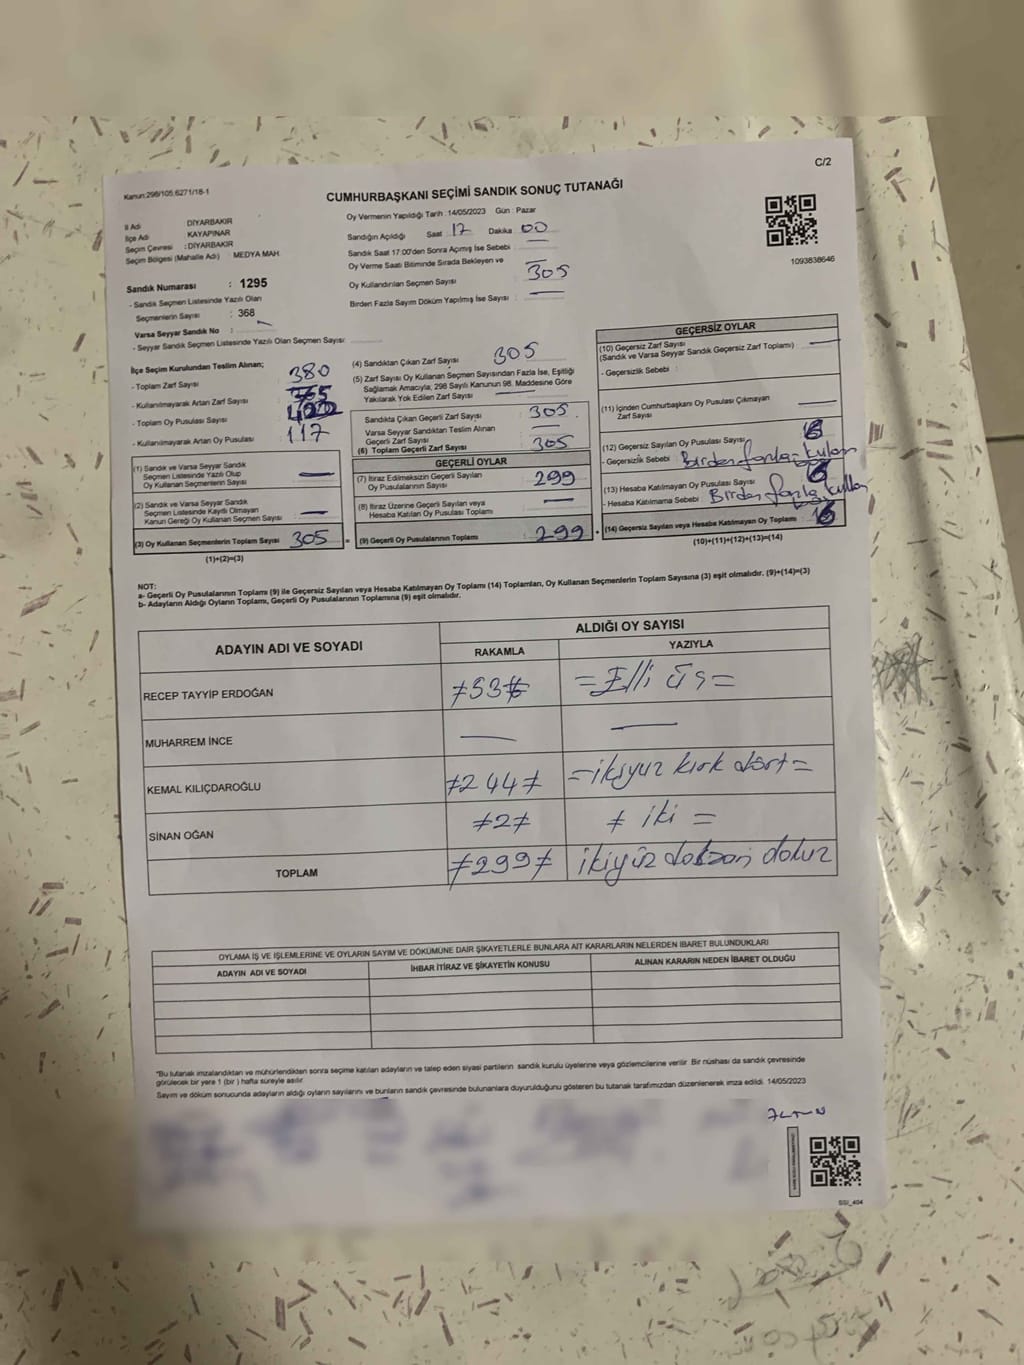 C/2
Kanun:298/105,6271/18-1
CUMHURBAŞKANI SEÇİMİ SANDIK SONUÇ TUTANAĞI
İl Adı DİYARBAKIR
İlçe Adı KAYAPINAR
Seçim Çevresi : DİYARBAKIR
Seçim Bölgesi (Mahalle Adı) : MEDYA MAH.
Oy Vermenin Yapıldığı Tarih : 14/05/2023 Gün : Pazar
Sandığın Açıldığı Saat 17 Dakika 00
Sandık Saat 17:00'den Sonra Açımış İse Sebebi :
Oy Verme Saati Bitiminde Sırada Bekleyen ve
Oy Kullandırılan Seçmen Sayısı 305
Birden Fazla Sayım Döküm Yapılmış İse Sayısı :
1093838646
Sandık Numarası : 1295
- Sandık Seçmen Listesinde Yazılı Olan
Seçmenlerin Sayısı : 368
Varsa Seyyar Sandık No :
- Seyyar Sandık Seçmen Listesinde Yazılı Olan Seçmen Sayısı:
İlçe Seçim Kurulundan Teslim Alınan;
- Toplam Zarf Sayısı 380
- Kullanılmayarak Artan Zarf Sayısı
- Toplam Oy Pusulası Sayısı
- Kullanılmayarak Artan Oy Pusulası 117
(1) Sandık ve Varsa Seyyar Sandık
Seçmen Listesinde Yazılı Olup
Oy Kullanan Seçmenlerin Sayısı
(2) Sandık ve Varsa Seyyar Sandık
Seçmen Listesinde Kayıtlı Olmayan
Kanun Gereği Oy Kullanan Seçmen Sayısı
(3) Oy Kullanan Seçmenlerin Toplam Sayısı 305 =
(1)+(2)=(3)
(4) Sandıktan Çıkan Zarf Sayısı 305
(5) Zarf Sayısı Oy Kullanan Seçmen Sayısından Fazla İse, Eşitliği
Sağlamak Amacıyla; 298 Sayılı Kanunun 98. Maddesine Göre
Yakılarak Yok Edilen Zarf Sayısı
Sandıkta Çıkan Geçerli Zarf Sayısı 305
Varsa Seyyar Sandıktan Teslim Alınan
Geçerli Zarf Sayısı
(6) Toplam Geçerli Zarf Sayısı 305
GEÇERLİ OYLAR
(7) İtiraz Edilmeksizin Geçerli Sayılan
Oy Pusulalarının Sayısı 299
(8) İtiraz Üzerine Geçerli Sayılan veya
Hesaba Katılan Oy Pusulası Toplamı
(9) Geçerli Oy Pusulalarının Toplamı 299 +
GEÇERSİZ OYLAR
(10) Geçersiz Zarf Sayısı
(Sandık ve Varsa Seyyar Sandık Geçersiz Zarf Toplamı)
- Geçersizlik Sebebi :
(11) İçinden Cumhurbaşkanı Oy Pusulası Çıkmayan
Zarf Sayısı
(12) Geçersiz Sayılan Oy Pusulası Sayısı 6
- Geçersizlik Sebebi Birden fazla kullan
(13) Hesaba Katılmayan Oy Pusulası Sayısı 6
- Hesaba Katılmama Sebebi Birden fazla kullan
(14) Geçersiz Sayılan veya Hesaba Katılmayan Oy Toplamı 6
(10)+(11)+(12)+(13)=(14)
NOT:
a- Geçerli Oy Pusulalarının Toplamı (9) ile Geçersiz Sayılan veya Hesaba Katılmayan Oy Toplamı (14) Toplamları, Oy Kullanan Seçmenlerin Toplam Sayısına (3) eşit olmalıdır. (9)+(14)=(3)
b- Adayların Aldığı Oyların Toplamı, Geçerli Oy Pusulalarının Toplamına (9) eşit olmalıdır.
ADAYIN ADI VE SOYADI ALDIĞI OY SAYISI
RAKAMLA YAZIYLA
RECEP TAYYİP ERDOĞAN ≠53≠ =Elli üç=
MUHARREM İNCE
KEMAL KILIÇDAROĞLU ≠244≠ =ikiyuz kırk dört=
SİNAN OĞAN ≠2≠ ≠ iki =
TOPLAM ≠299≠ ikiyüz doksan dokuz
OYLAMA İŞ VE İŞLEMLERİNE VE OYLARIN SAYIM VE DÖKÜMÜNE DAİR ŞİKAYETLERLE BUNLARA AİT KARARLARIN NELERDEN İBARET BULUNDUKLARI
ADAYIN ADI VE SOYADI İHBAR İTİRAZ VE ŞİKAYETİN KONUSU ALINAN KARARIN NEDEN İBARET OLDUĞU
"Bu tutanak imzalandıktan ve mühürlendikten sonra seçime katılan adayların ve talep eden siyasi partilerin sandık kurulu üyelerine veya gözlemcilerine verilir. Bir nüshası da sandık çevresinde
görülecek bir yere 1 (bir ) hafta süreyle asılır.
Sayım ve döküm sonucunda adayların aldığı oyların sayılarını ve bunların sandık çevresinde bulunanlara duyurulduğunu gösteren bu tutanak tarafımızdan düzenlenerek imza edildi. 14/05/2023
SSI_404